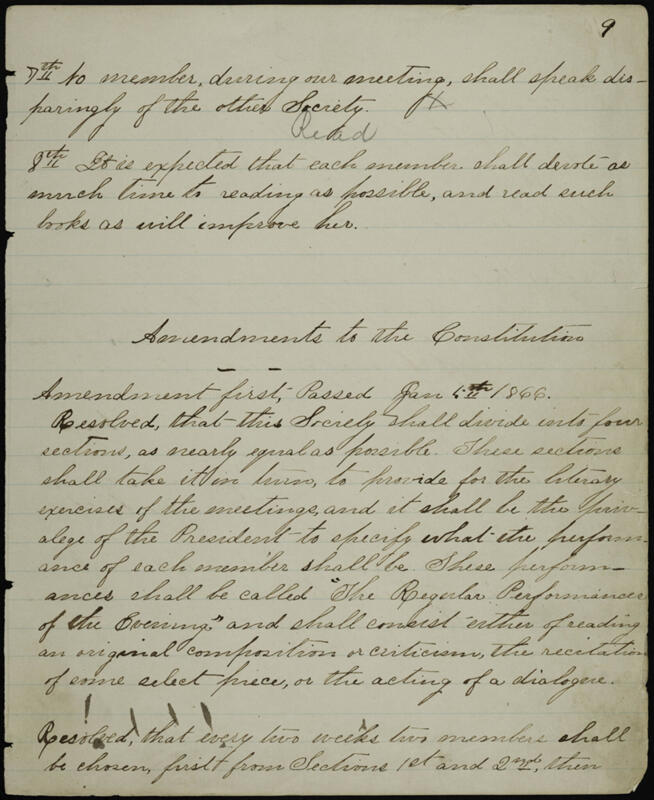 9
7th No member, during our meeting, shall speak dis-
paringly of the other Society.
Read
8th It is expected that each member shall devote as
much time to reading as possible, and read such
books as will improve her.
Amendments to the Constitution
Amendment first, Passed Jan 5th 1866.
Resolved, that this Society shall divide into four
sections, as nearly equal as possible. These sections
shall take it in turn, to provide for the literary
exercises of the meetings, and it shall be the priv-
alege of the President to specify what the perform-
ance of each member shall be. These perform-
ances shall be called "The Regular Performances
of the Evening" and shall consist either of reading
an original composition or criticism, the recitation
of some select piece, or the acting of a dialogue.
Resolved, that every two weeks two members shall
be chosen, first from Sections 1st and 2nd, then